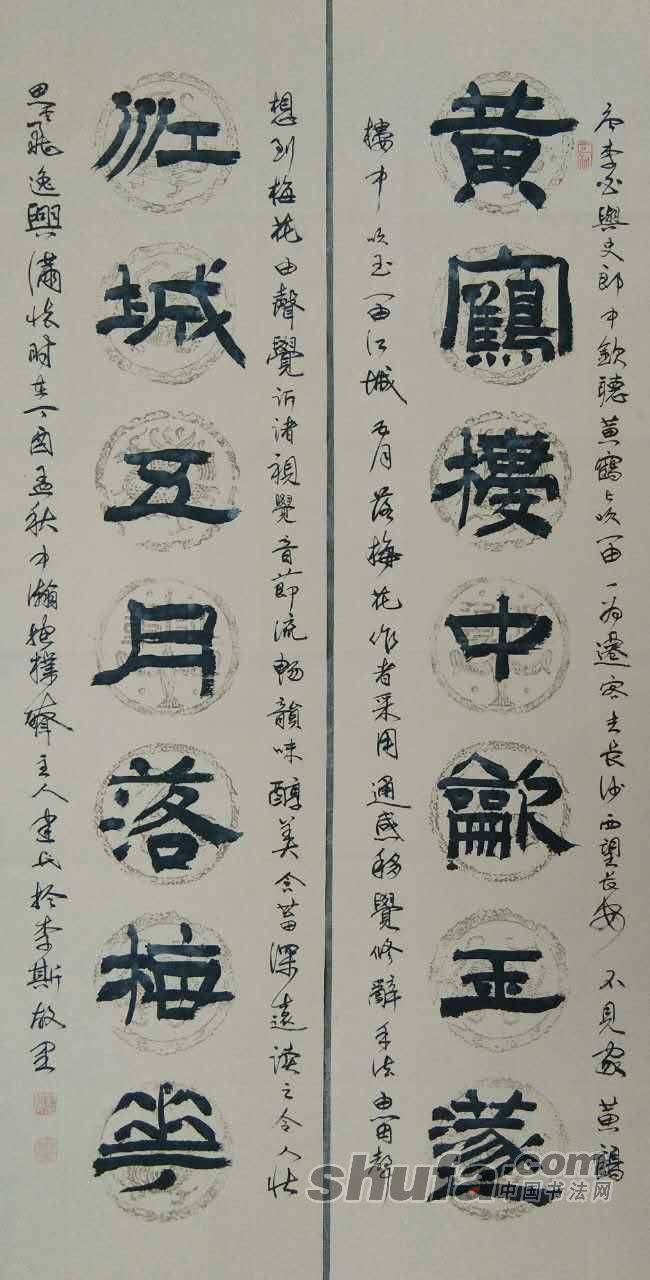 唐李白與史郎中欽聽黃鶴樓吹笛一為遷客去長沙西望長安不見家黃鶴
黃鶴樓中龡玉篴
樓中吹玉笛江城五月落梅花作者采用通感移覺修辭手法由笛聲
想到梅花由聲覺訴諸視覺音節流畅韻味醇美含蓄深遠读之令人性
江城五月落梅華
思飛逸興滿懷时在丁酉孟秋中瀚 主人 於李斯故里
shufa.com
中国书法网